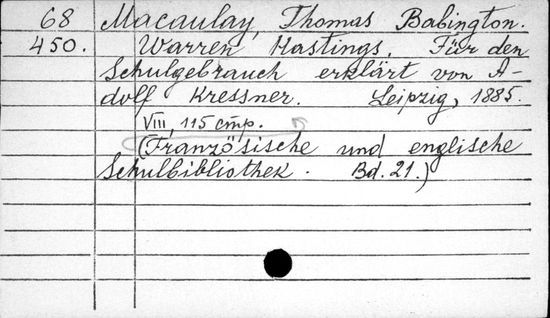 68 Macaulay, Thomas Babington.
450. Warren Hastings. Für den
Schulgebrauch erklärt von A-
dolf Kressner. Leipzig, 1885.
VIII, 115 стр.
(Französische und englische
Schulbibliothek. Bd. 21.)